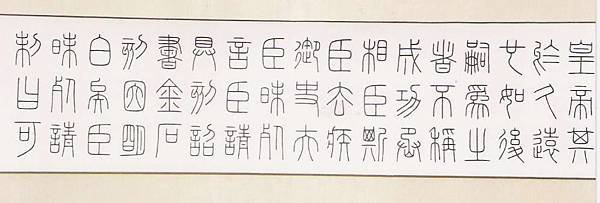 皇帝其
於久遠
也如後
嗣爲之
者不稱
成功盛
相臣斯
臣去疾
御史夫
臣昧死
言臣請
具刻詔
書金石
刻因明
白矣臣
昧死請
制曰可